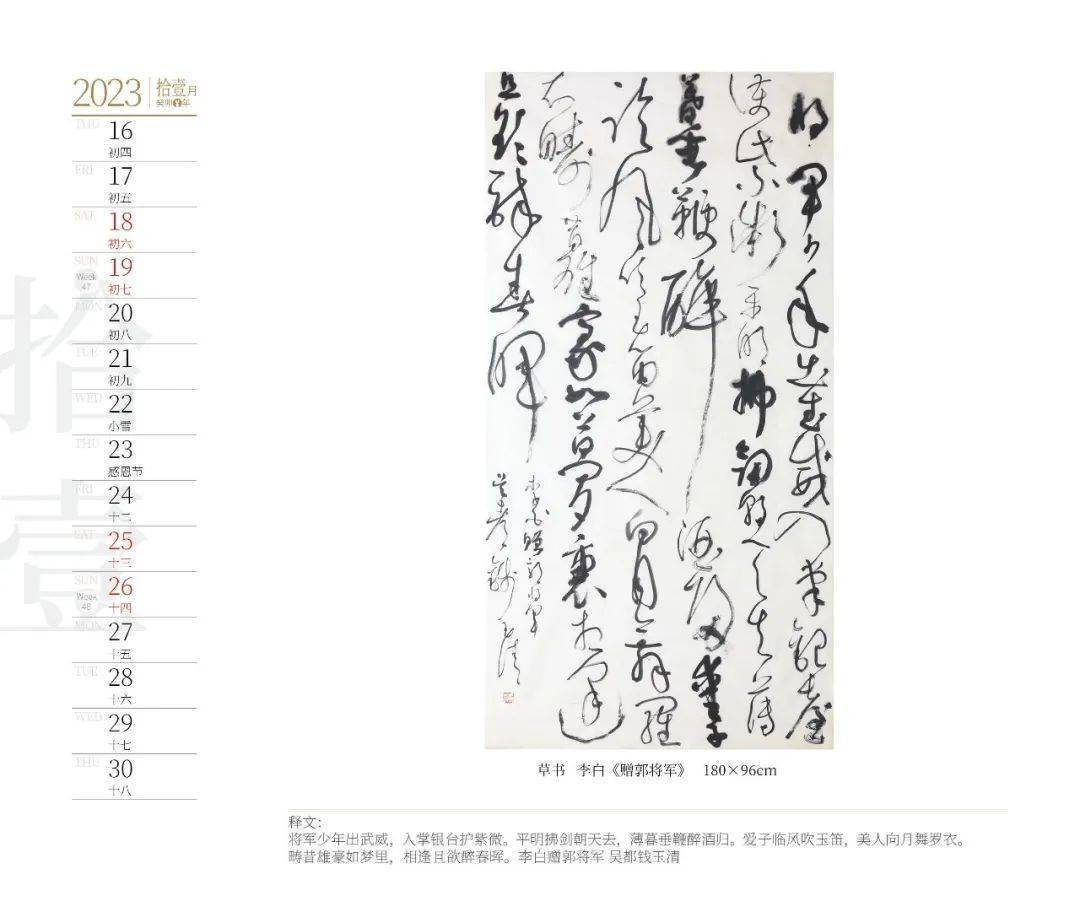 2023 拾壹月
癸卯年
THU 16
初四
FRI 17
初五
SAT 18
初六
SUN 19
Week 47 初七
MON 20
初八
TUE 21
初九
WED 22
小雪
THU 23
感恩节
FRI 24
十二
SAT 25
十三
SUN 26
Week 48 十四
MON 27
十五
TUE 28
十六
WED 29
十七
THU 30
十八
拾壹
将军少年出武威入掌银台
护紫微平明拂剑朝天去薄
暮垂鞭醉酒归爱子
临风吹玉笛美人向月舞罗
衣畴昔雄豪如梦里相逢
且欲醉春晖
李白赠郭将军
吴都钱玉清
草书 李白《赠郭将军》 180×96cm
释文：
将军少年出武威，入掌银台护紫微。平明拂剑朝天去，薄暮垂鞭醉酒归。爱子临风吹玉笛，美人向月舞罗衣。
畴昔雄豪如梦里，相逢且欲醉春晖。李白赠郭将军 吴都钱玉清